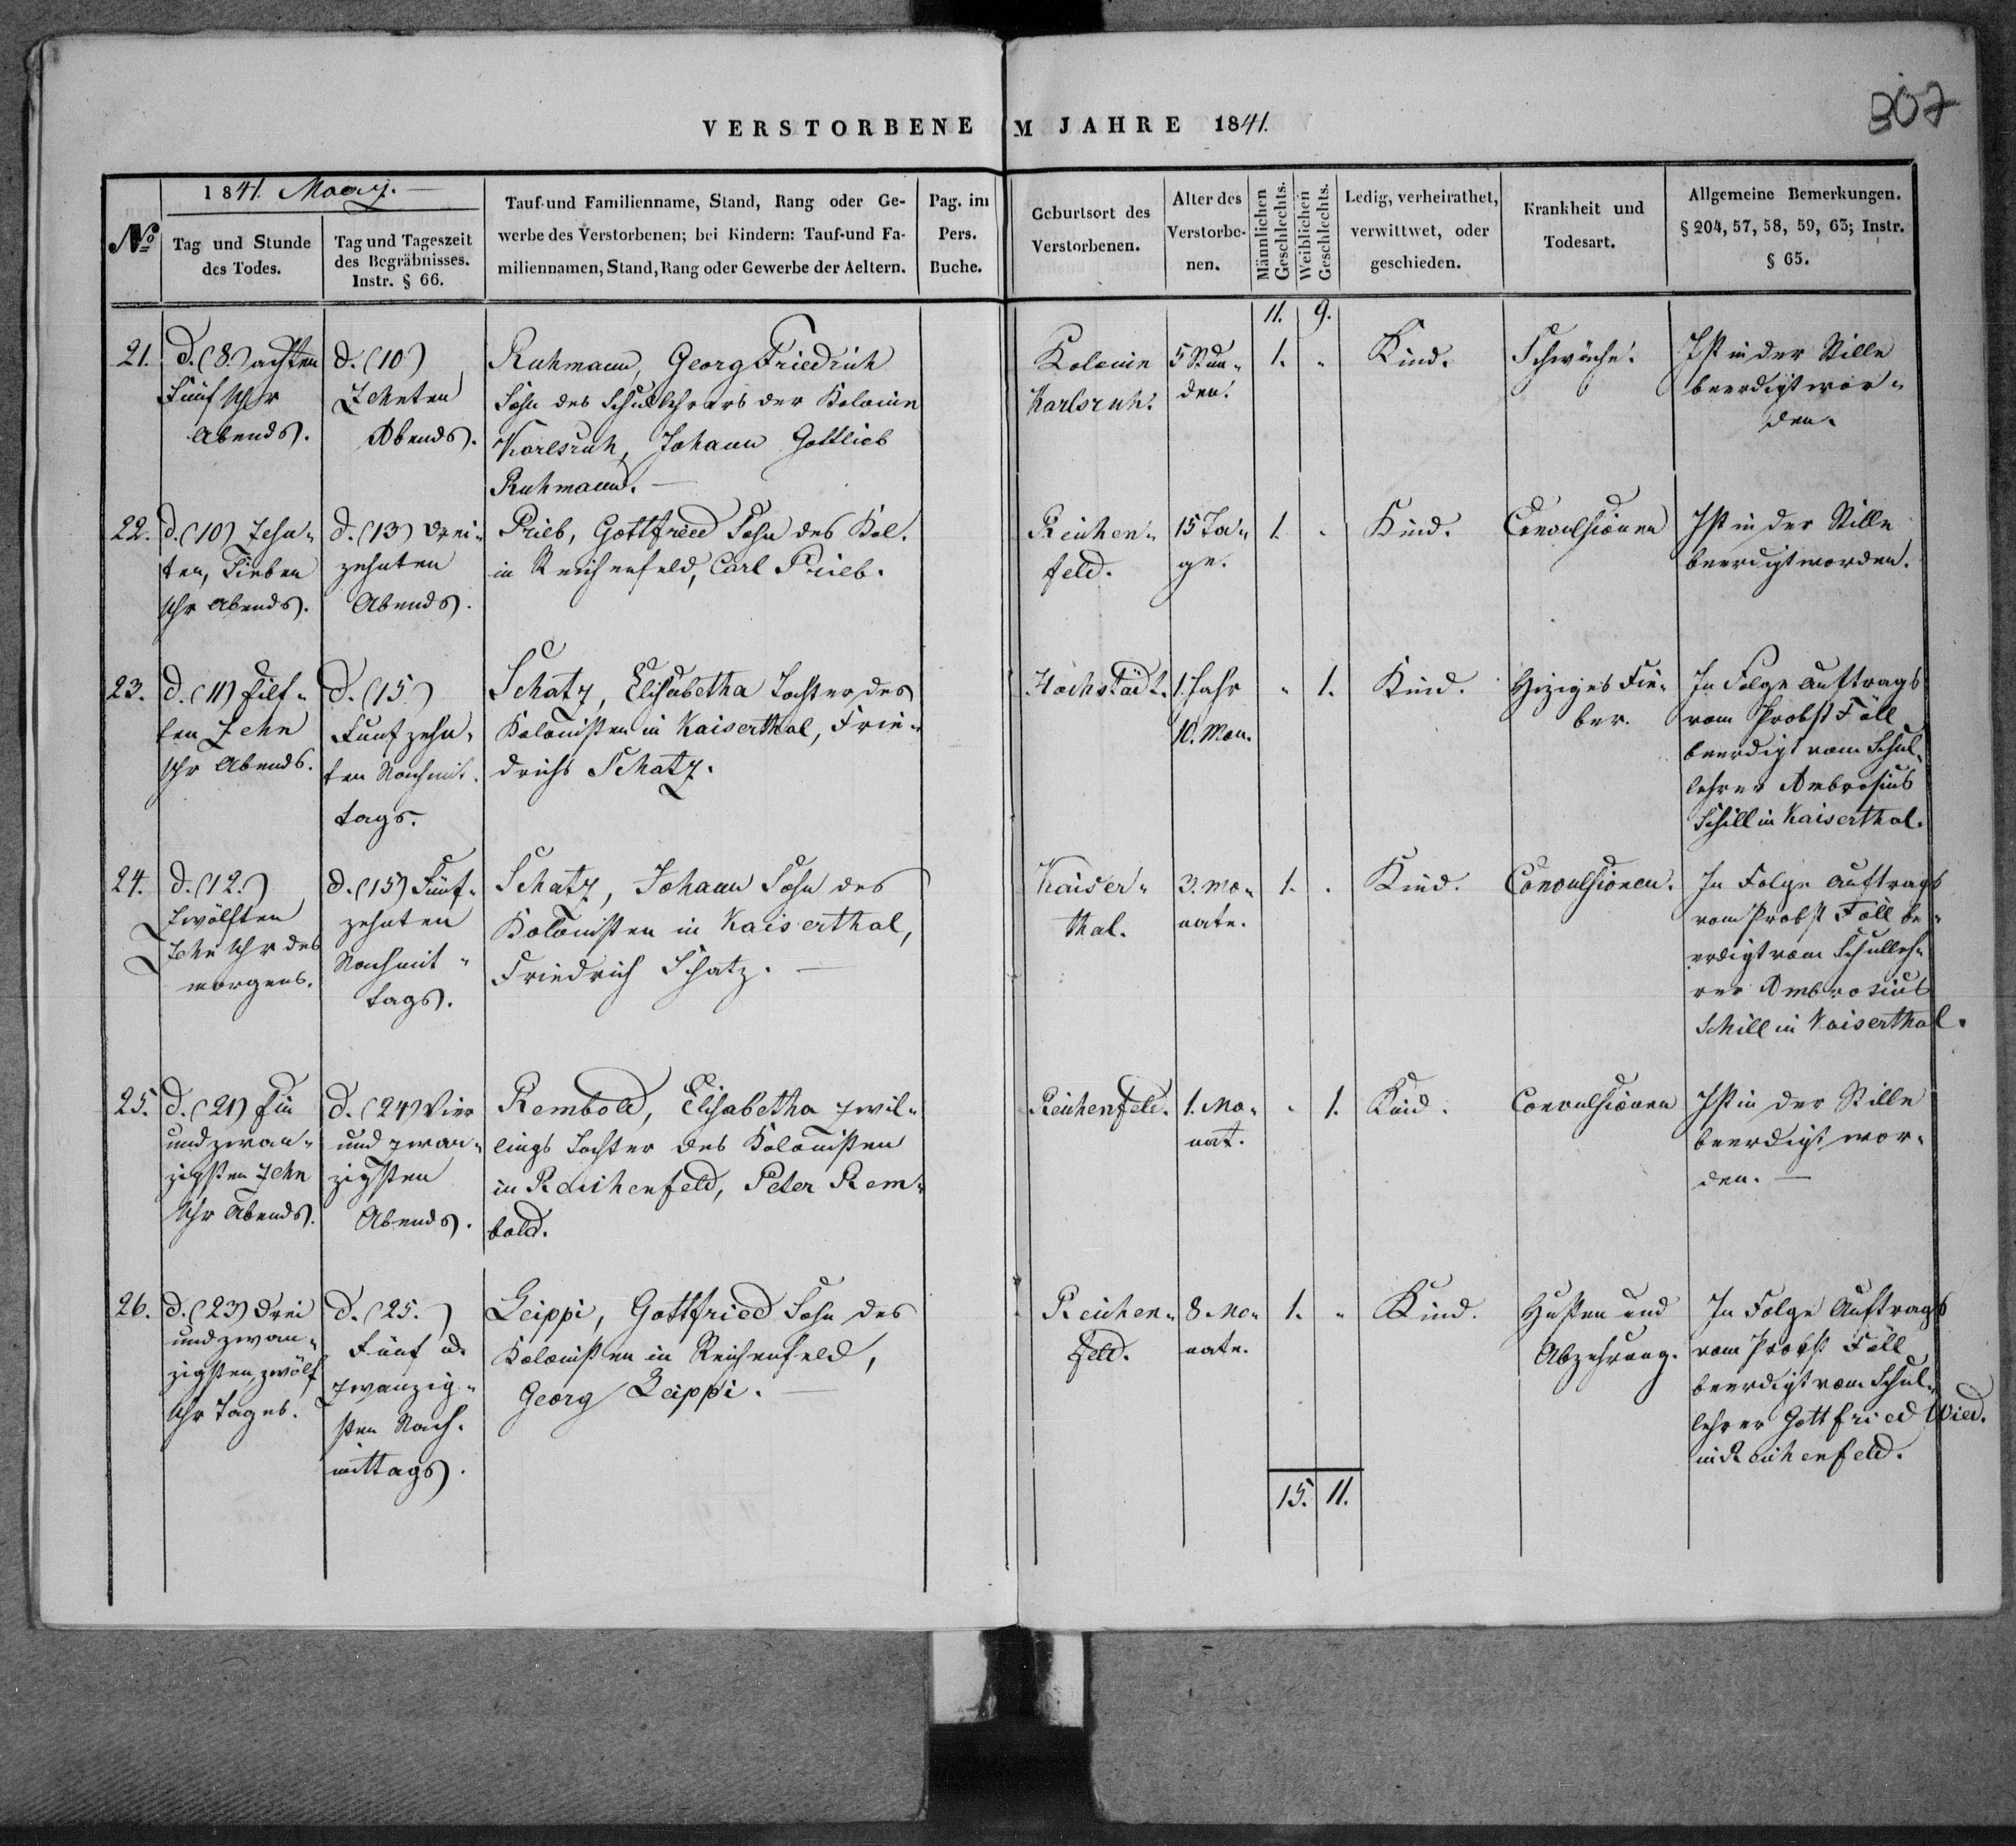 307
VERSTORBENE IM JAHRE 1841.
1841. Maerz.
№
Tag und Stunde
des Todes.
Tag und Tageszeit
des Begräbnisses.
Instr. § 66.
Tauf-und Familienname, Stand, Rang oder Ge-
werbe des Verstorbenen; bei Kindern: Tauf-und Fa-
miliennamen, Stand, Rang oder Gewerbe der Aeltern.
Pag. im
Pers.
Buche.
Geburtsort des
Verstorbenen.
Alter des
Verstorbe-
nen.
Männlichen
Geschlechts.
Weiblichen
Geschlechts.
Ledig, verheirathet,
verwittwet, oder
geschieden.
Krankheit und
Todesart.
Allgemeine Bemerkungen.
§ 204, 57, 58, 59, 63; Instr.
§ 65.
11. 9.
21.
d. (8.) achten
Fünf Uhr
Abends.
d. (10)
Zehnten
Abends.
Ruhmann, Georg Friedrich
Sohn des Schullehrers der Kolonie
Karlsruh, Johann Gottlieb
Ruhmann. —
Kolonie
Karlsruh.
5 Stun-
den.
1. "
Kind.
Schwäche.
Ist in der Stille
beerdigt wor-
den.
22.
d. (10) Zehn-
ten, Sieben
Uhr Abends.
d. (13) drei-
zehnten
Abends.
Prieb, Gottfried Sohn des Kol.
in Reichenfeld, Carl Prieb.
Reichen-
feld.
15 Ta-
ge.
1. "
Kind.
Convulsionen
Ist in der Stille
beerdigt worden.
23.
d. (11) Eilf-
ten Zehn
Uhr Abends.
d. (15)
Funfzehn-
ten Nachmit-
tags.
Schatz, Elisabetha Tochter des
Kolonisten in Kaiserthal, Frie-
drich Schatz.
Hochstädt.
1. Jahr
10. Mon.
" 1.
Kind.
Hiziges Fie-
ber.
In Folge Auftrags
vom Probst Föll
beerdigt vom Schul-
lehrer Ambrosius
Schill in Kaiserthal.
24.
d. (12.)
Zwölften
Zehn Uhr des
morgens.
d. (15) Fünf-
zehnten
Nachmit-
tags.
Schatz, Johann Sohn des
Kolonisten in Kaiserthal,
Friedrich Schatz. —
Kaiser-
thal.
3. Mo-
nate.
1. "
Kind.
Convulsionen.
In Folge Auftrags
vom Probst Föll be-
erdigt vom Schulleh-
rer Ambrosius
Schill in Kaiserthal.
25.
d. (21) Ein
und zwan-
zigsten Zehn
Uhr Abends.
d. (24) Vier
und zwan-
zigsten
Abends.
Rembold, Elisabetha Zwil-
lings Tochter des Kolonisten
in Reichenfeld, Peter Rem-
bold.
Reichenfeld.
1. Mo-
nat.
" 1.
Kind.
Convulsionen
Ist in der Stille
beerdigt wor-
den. —
26.
d. (23) drei
und zwan-
zigsten, zwölf
Uhr Tages.
d. (25.)
Fünf u.
zwanzig-
sten Nach-
mittags.
Leippi, Gottfried Sohn des
Kolonisten in Reichenfeld,
Georg Leippi. —
Reichen-
feld.
8 Mo-
nate.
1. "
Kind.
Husten und
Abzehrung.
In Folge Auftrags
vom Probst Föll
beerdigt vom Schul-
lehrer Gottfried Wied.
in Reichenfeld.
15. 11.